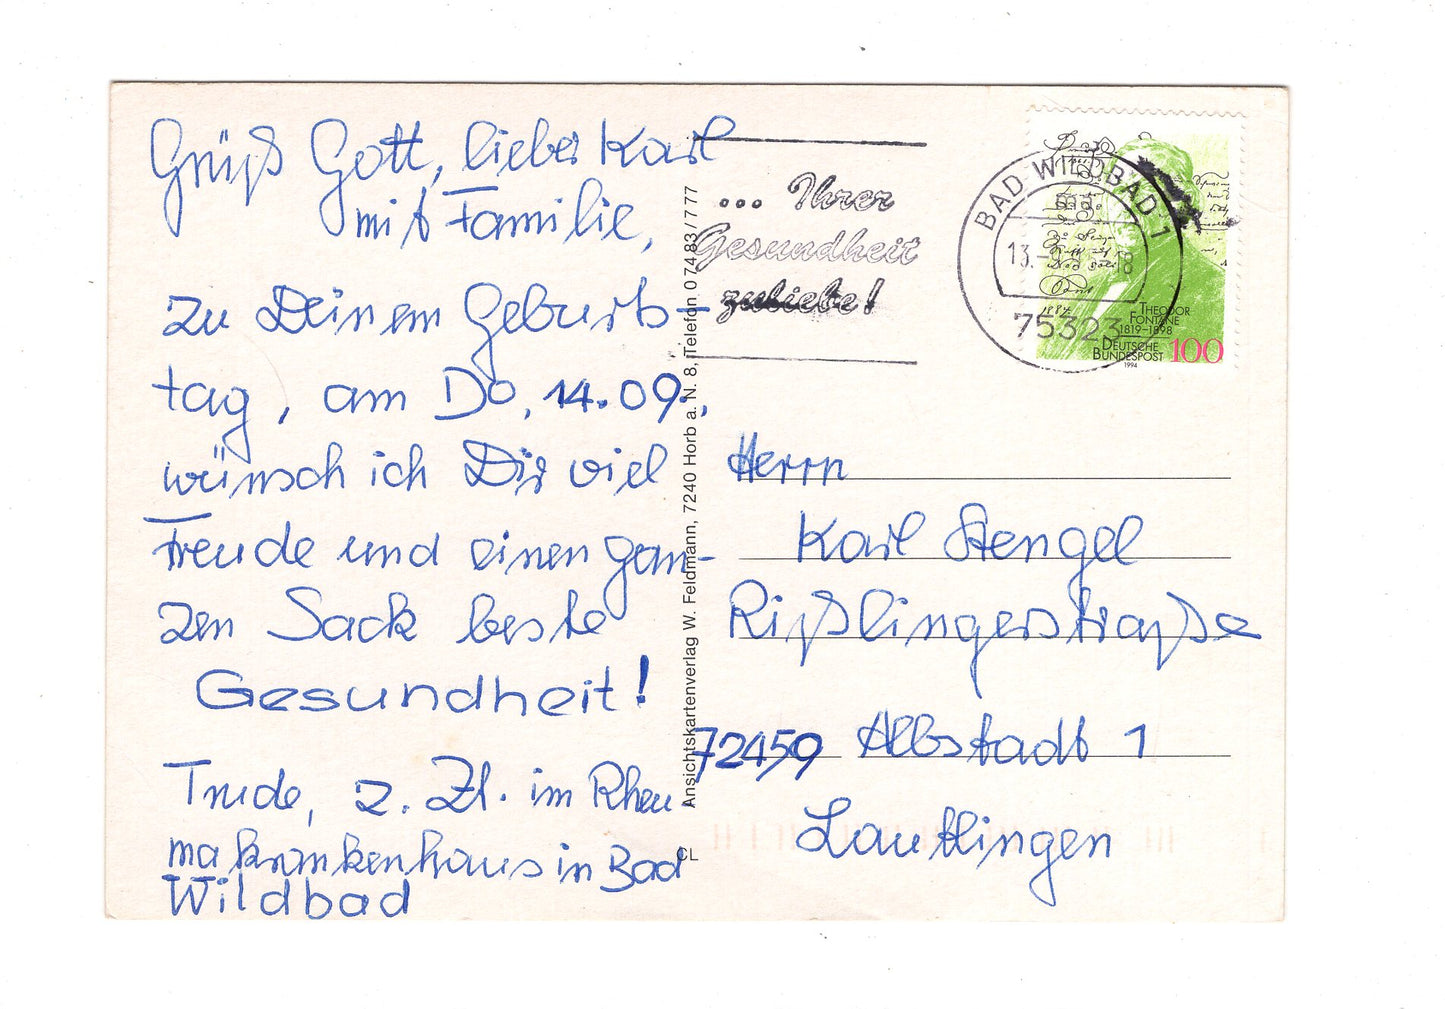 Grüß Gott, lieber Karl
mit Familie,
zu Deinem Geburts-
tag, am Do, 14.09.,
wünsch ich Dir viel
Freude und einen gan-
zen Sack beste
Gesundheit!
Trude, z. Zt. im Rheu-
makrankenhaus in Bad
Wildbad
Ansichtskartenverlag W. Feldmann, 7240 Horb a. N. 8, Telefon 07483/777
CL
... Ihrer
Gesundheit
zuliebe!
BAD WILDBAD 1
75323
THEODOR
FONTANE
1819–1898
DEUTSCHE
BUNDESPOST
100
1994
Herrn
Karl Stengel
Rißlingerstraße
72459 Albstadt 1
Lautlingen